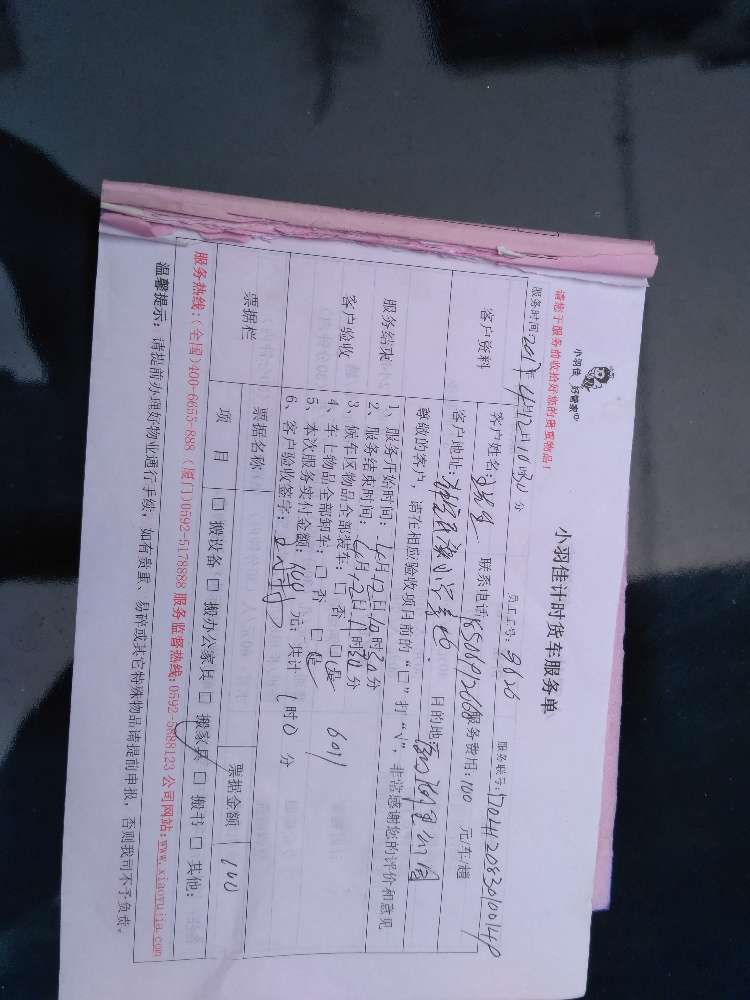 小羽佳 好管家
小羽佳计时货车服务单
请您于服务前收拾好您的贵重物品！
服务时间：2017年4月12日10时30分 员工工号：9826 服务账号：
客户资料
客户姓名： 联系电话 服务费用：100 元/车/趟
客户地址： 目的地
尊敬的客户，请在相应验收项目前的“□”打“√”，非常感谢您的评价和意见
服务结束
客户验收
1、服务开始时间：4月12日10时30分
2、服务结束时间：4月12日11时30分
3、候车区物品全部装车：□ 否 □ 是
4、车上物品全部卸车：□ 否 □ 是
5、本次服务实付金额：100 元；共计 1时0分
6、客户验收签字：
6011
票据栏
票据名称 票据金额 100
项 目 □ 搬设备 □ 搬办公家具 □ 搬家具 □ 搬书 □ 其他：
服务热线：(全国)400-6655-888 (厦门)0592-5178888 服务监督热线：0592-5888123 公司网站：www.xiaoyujia.com
温馨提示：请提前办理好物业通行手续，如有贵重、易碎或其它特殊物品请提前申报，否则我司不予负责。